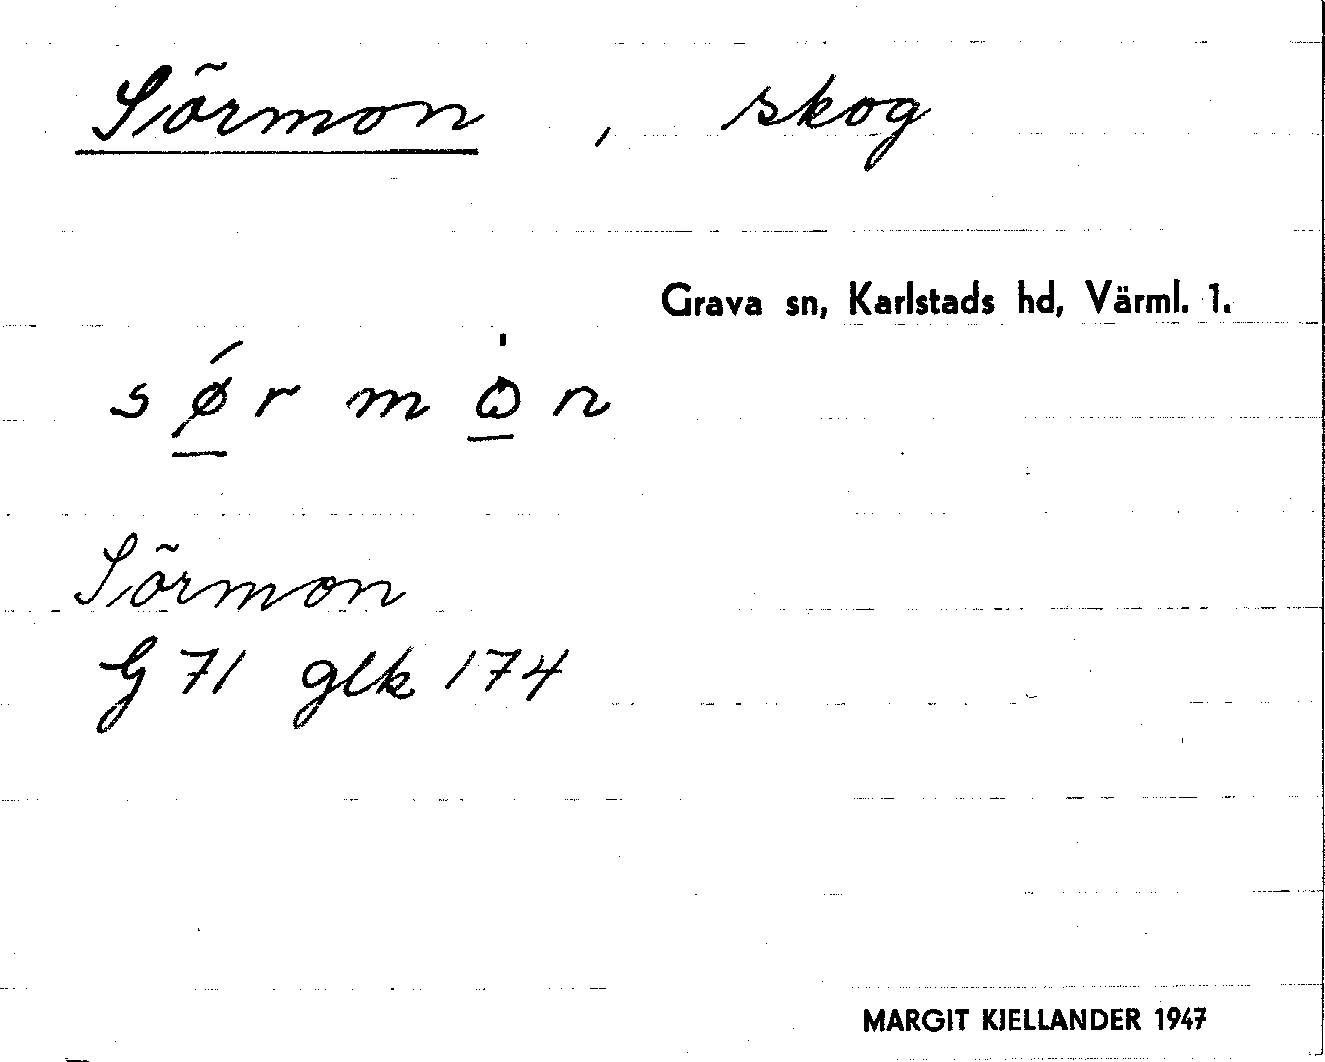 Sörmon , skog
Grava sn, Karlstads hd, Värml. 1.
sǿ̱rmò̱n
Sörmon
G 71 glk 174
MARGIT KJELLANDER 1947